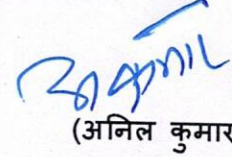 (अनिल कुमार